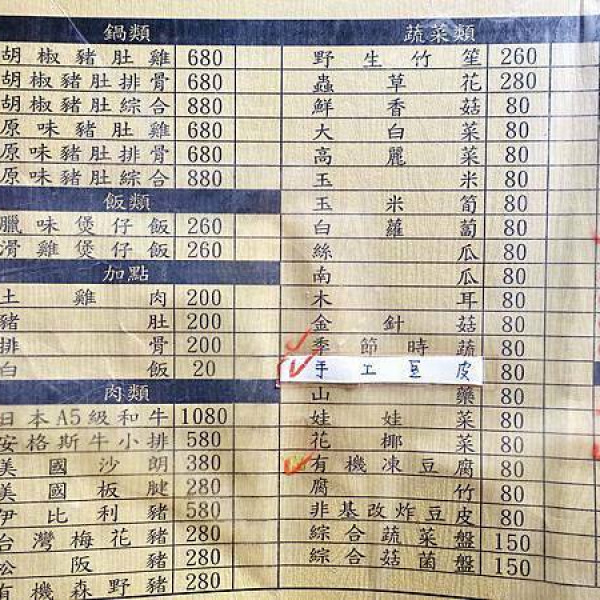 鍋類
胡椒豬肚雞 680
胡椒豬肚排骨 680
胡椒豬肚綜合 880
原味豬肚雞 680
原味豬肚排骨 680
原味豬肚綜合 880
飯類
臘味煲仔飯 260
滑雞煲仔飯 260
加點
土雞肉 200
豬肚 200
排骨 200
白飯 20
肉類
日本A5級和牛 1080
安格斯牛小排 580
美國沙朗 380
美國板腱 280
伊比利豬 580
台灣梅花豬 280
松阪豬 280
有機森野豬 280
蔬菜類
野生竹笙 260
蟲草花 280
鮮香菇 80
大白菜 80
高麗菜 80
玉米 80
玉米筍 80
白蘿蔔 80
絲瓜 80
南瓜 80
木耳 80
金針菇 80
季節時蔬 80
手工豆皮 80
山藥 80
娃娃菜 80
花椰菜 80
有機凍豆腐 80
腐竹 80
非基改炸豆皮 80
綜合蔬菜盤 150
綜合菇菌盤 150